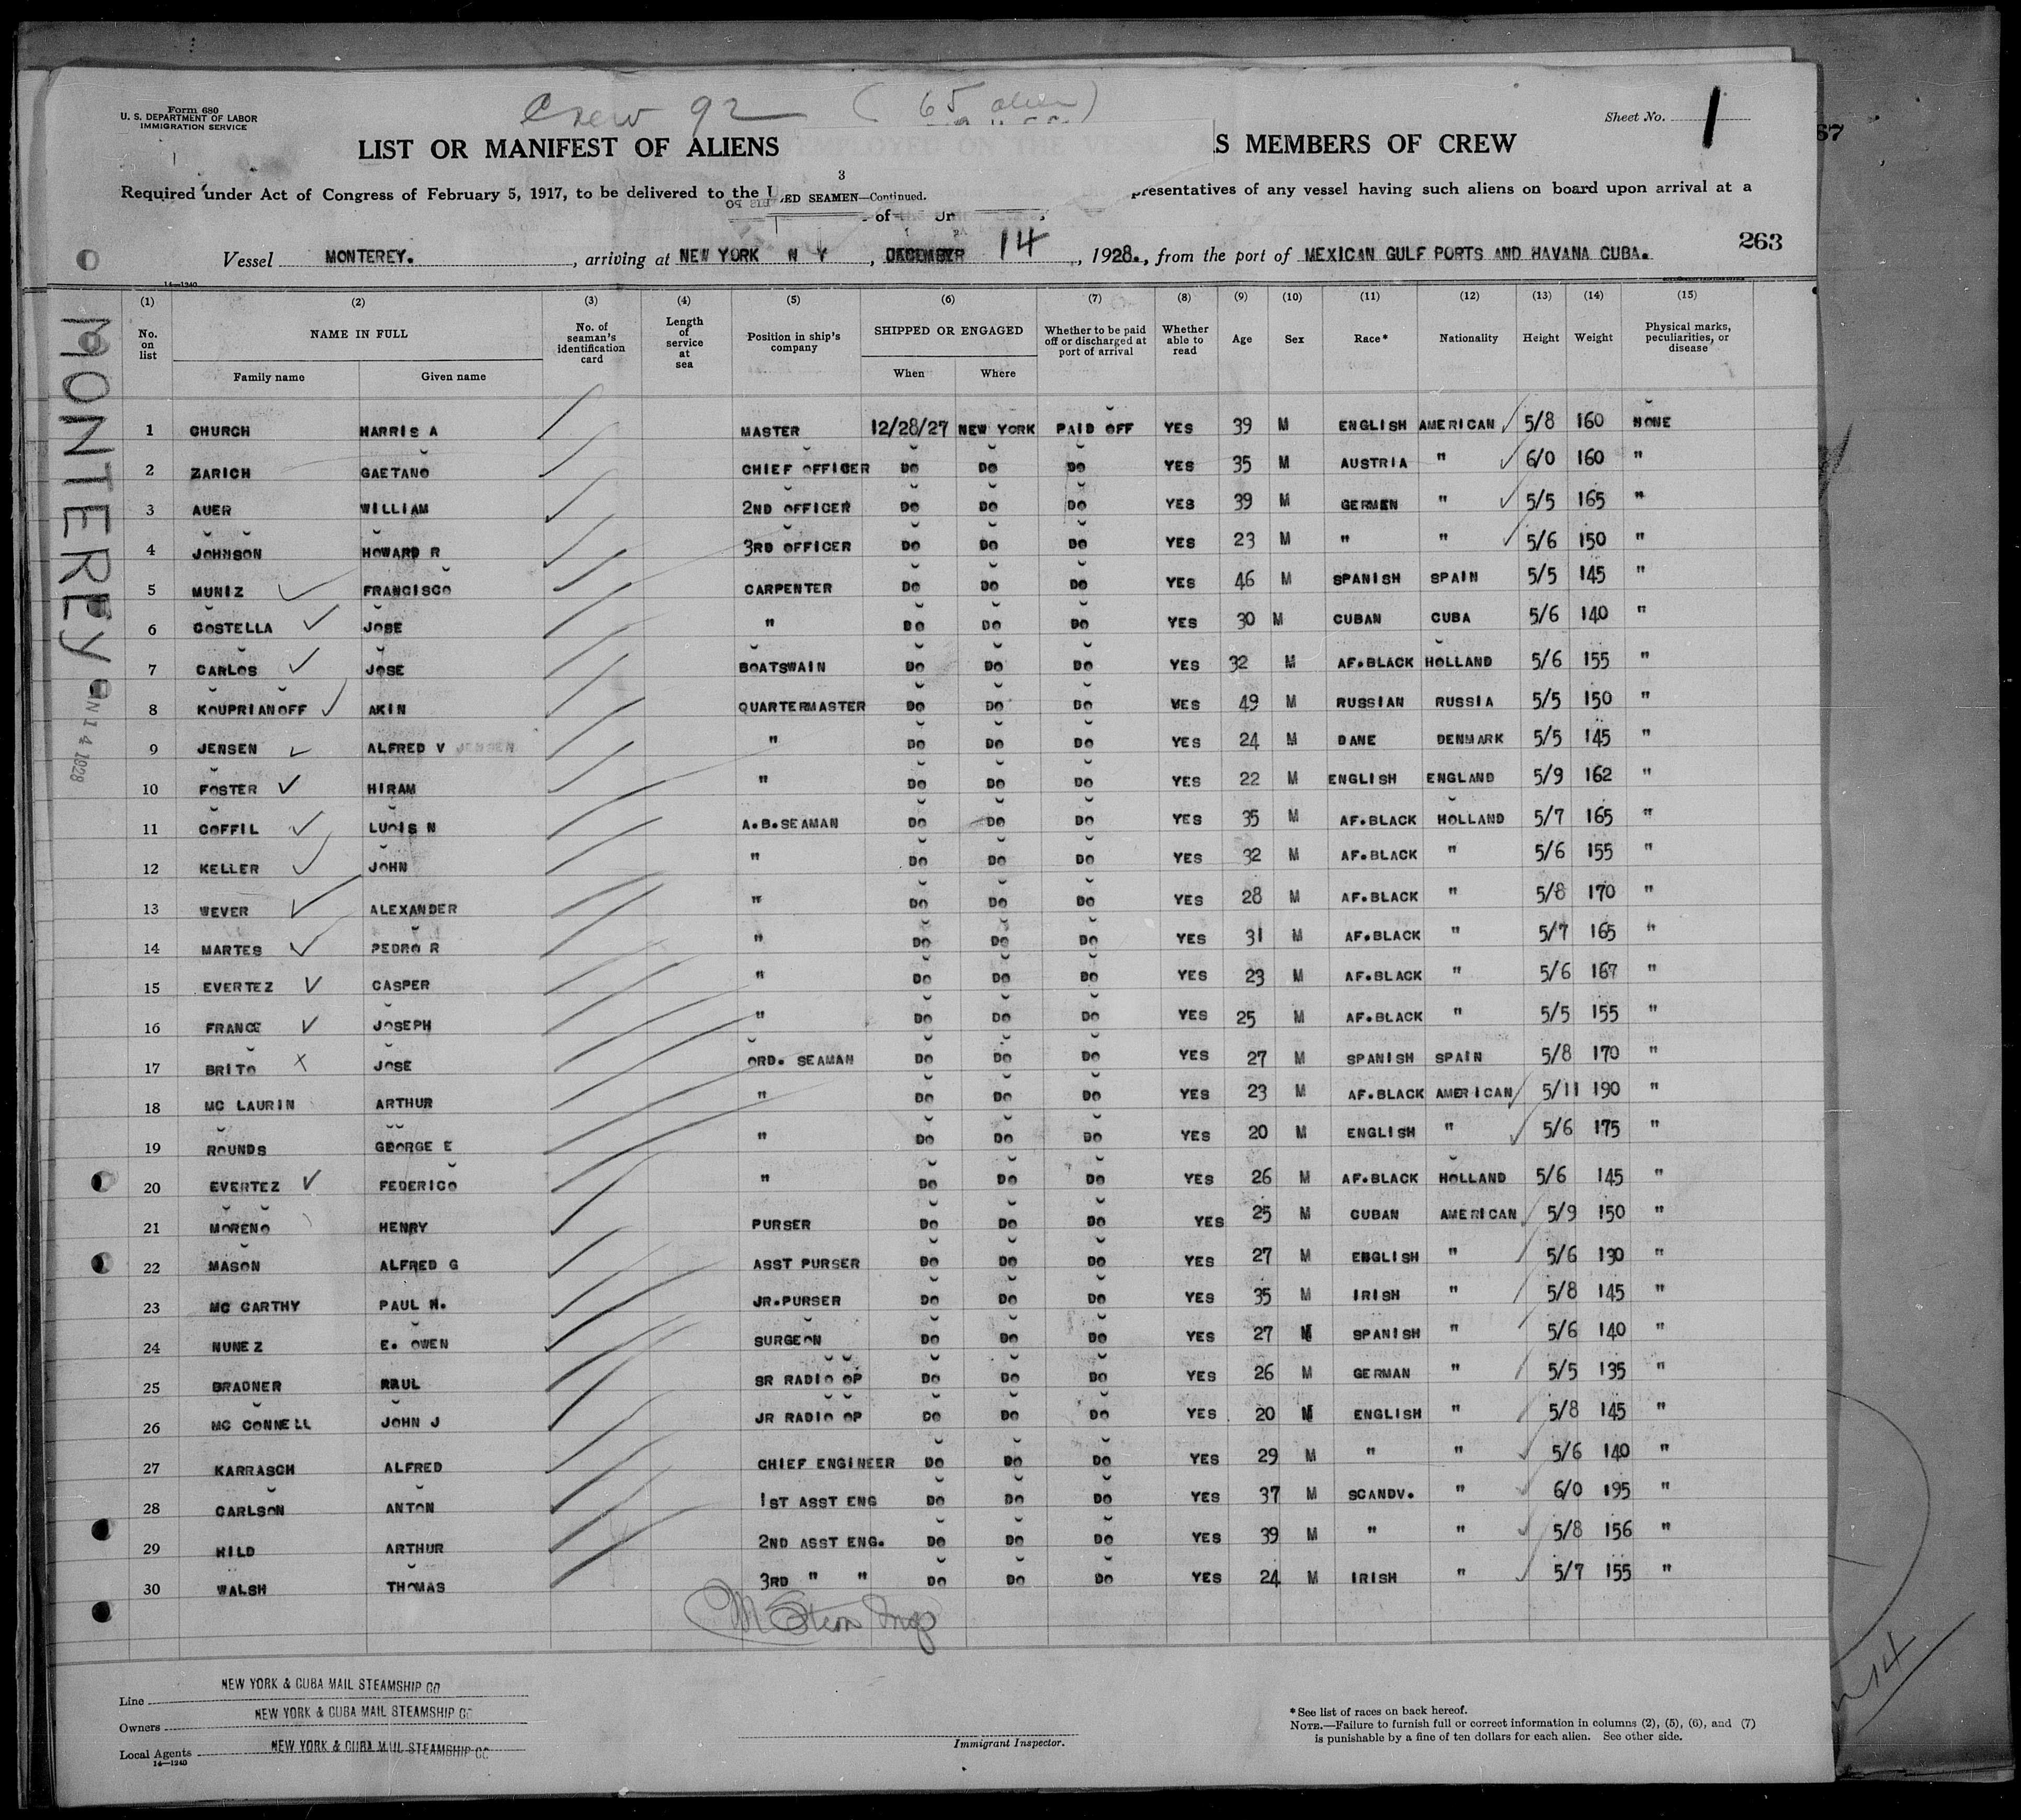 Form 680
U. S. DEPARTMENT OF LABOR
IMMIGRATION SERVICE
Crew 92 ( 65 alien )
Sheet No. 1
67
LIST OR MANIFEST OF ALIENS
S MEMBERS OF CREW
3
Required under Act of Congress of February 5, 1917, to be delivered to the U
ED SEAMEN—Continued.
presentatives of any vessel having such aliens on board upon arrival at a
of
Vessel MONTEREY. , arriving at NEW YORK N Y , DECEMBER 14 , 1928., from the port of MEXICAN GULF PORTS AND HAVANA CUBA.
263
14—1240
MONTEREY
N 14 1928
(1) (2) (3) (4) (5) (6) (7) (8) (9) (10) (11) (12) (13) (14) (15)
No. on list NAME IN FULL No. of seaman's identification card Length of service at sea Position in ship's company SHIPPED OR ENGAGED Whether to be paid off or discharged at port of arrival Whether able to read Age Sex Race* Nationality Height Weight Physical marks, peculiarities, or disease
Family name Given name When Where
1 CHURCH HARRIS A MASTER 12/28/27 NEW YORK PAID OFF YES 39 M ENGLISH AMERICAN 5/8 160 NONE
2 ZARICH GAETANO CHIEF OFFICER DO DO DO YES 35 M AUSTRIA " 6/0 160 "
3 AUER WILLIAM 2ND OFFICER DO DO DO YES 39 M GERMEN " 5/5 165 "
4 JOHNSON HOWARD R 3RD OFFICER DO DO DO YES 23 M " " 5/6 150 "
5 MUNIZ FRANCISCO CARPENTER DO DO DO YES 46 M SPANISH SPAIN 5/5 145 "
6 COSTELLA JOSE " DO DO DO YES 30 M CUBAN CUBA 5/6 140 "
7 CARLOS JOSE BOATSWAIN DO DO DO YES 32 M AF.BLACK HOLLAND 5/6 155 "
8 KOUPRIANOFF AKIN QUARTERMASTER DO DO DO YES 49 M RUSSIAN RUSSIA 5/5 150 "
9 JENSEN ALFRED V JENSEN " DO DO DO YES 24 M DANE DENMARK 5/5 145 "
10 FOSTER HIRAM " DO DO DO YES 22 M ENGLISH ENGLAND 5/9 162 "
11 COFFIL LUOIS N A.B.SEAMAN DO DO DO YES 35 M AF.BLACK HOLLAND 5/7 165 "
12 KELLER JOHN " DO DO DO YES 32 M AF.BLACK " 5/6 155 "
13 WEVER ALEXANDER " DO DO DO YES 28 M AF.BLACK " 5/8 170 "
14 MARTES PEDRO R " DO DO DO YES 31 M AF.BLACK " 5/7 165 "
15 EVERTEZ CASPER " DO DO DO YES 23 M AF.BLACK " 5/6 167 "
16 FRANCE JOSEPH " DO DO DO YES 25 M AF.BLACK " 5/5 155 "
17 BRITO JOSE ORD. SEAMAN DO DO DO YES 27 M SPANISH SPAIN 5/8 170 "
18 MC LAURIN ARTHUR " DO DO DO YES 23 M AF.BLACK AMERICAN 5/11 190 "
19 ROUNDS GEORGE E " DO DO DO YES 20 M ENGLISH " 5/6 175 "
20 EVERTEZ FEDERICO " DO DO DO YES 26 M AF.BLACK HOLLAND 5/6 145 "
21 MORENO HENRY PURSER DO DO DO YES 25 M CUBAN AMERICAN 5/9 150 "
22 MASON ALFRED G ASST PURSER DO DO DO YES 27 M ENGLISH " 5/6 130 "
23 MC CARTHY PAUL H. JR.PURSER DO DO DO YES 35 M IRISH " 5/8 145 "
24 NUNEZ E. OWEN SURGEON DO DO DO YES 27 M SPANISH " 5/6 140 "
25 BRADNER RAUL SR RADIO OP DO DO DO YES 26 M GERMAN " 5/5 135 "
26 MC CONNELL JOHN J JR RADIO OP DO DO DO YES 20 M ENGLISH " 5/8 145 "
27 KARRASCH ALFRED CHIEF ENGINEER DO DO DO YES 29 M " " 5/6 140 "
28 CARLSON ANTON 1ST ASST ENG DO DO DO YES 37 M SCANDV. " 6/0 195 "
29 HILD ARTHUR 2ND ASST ENG. DO DO DO YES 39 M " " 5/8 156 "
30 WALSH THOMAS 3RD " " DO DO DO YES 24 M IRISH " 5/7 155 "
Line NEW YORK & CUBA MAIL STEAMSHIP CO
Owners NEW YORK & CUBA MAIL STEAMSHIP CO
Local Agents NEW YORK & CUBA MAIL STEAMSHIP CO
14—1240
Immigrant Inspector.
*See list of races on back hereof.
NOTE.—Failure to furnish full or correct information in columns (2), (5), (6), and (7)
is punishable by a fine of ten dollars for each alien. See other side.